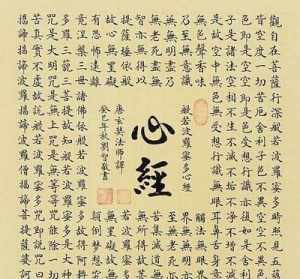 觀自在菩薩行深般若波羅蜜多時照見五蘊
皆空度一切苦厄舍利子色不異空空不異
色即是空空即是色受想行識亦復如是舍利
子是諸法空相不生不滅不垢不淨不增不減
是故空中無色無受想行識無眼耳鼻舌身意
無色聲香味觸法無眼界
乃至無意識界無無明亦
無無明盡乃至無老死亦
無老死盡無苦集滅道無
智亦無得以無所得故菩
提薩埵依般若波羅蜜多
故心無罣礙無罣礙故無
有恐怖遠離顛倒夢想究
竟涅槃三世諸佛依般若波羅蜜多故得阿耨
多羅三藐三菩提故知般若波羅蜜多是大神
咒是大明咒是無上咒是無等等咒能除一切
苦真實不虛故說般若波羅蜜多咒即說咒曰
揭諦揭諦波羅揭諦波羅僧揭諦
般若波羅蜜多心經
心經
唐玄奘法師譯
癸巳年秋劉智敬書